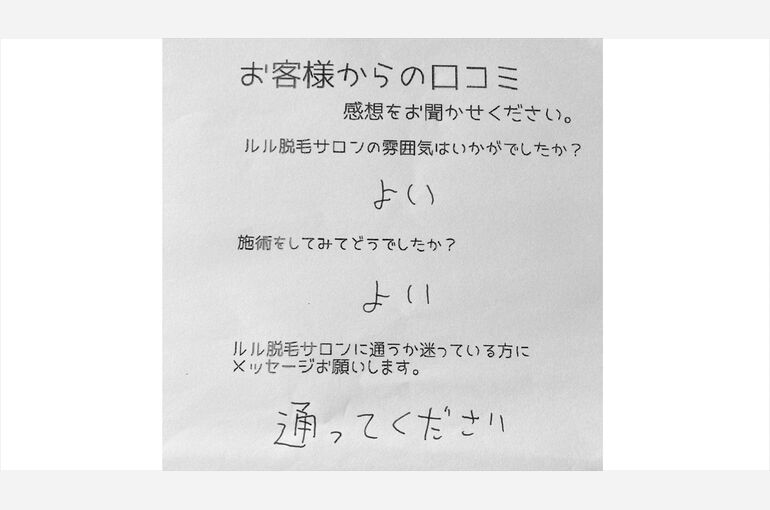 お客様からの口コミ
感想をお聞かせください。
ルル脱毛サロンの雰囲気はいかがでしたか？
よい
施術をしてみてどうでしたか？
よい
ルル脱毛サロンに通うか迷っている方に
メッセージお願いします。
通ってください